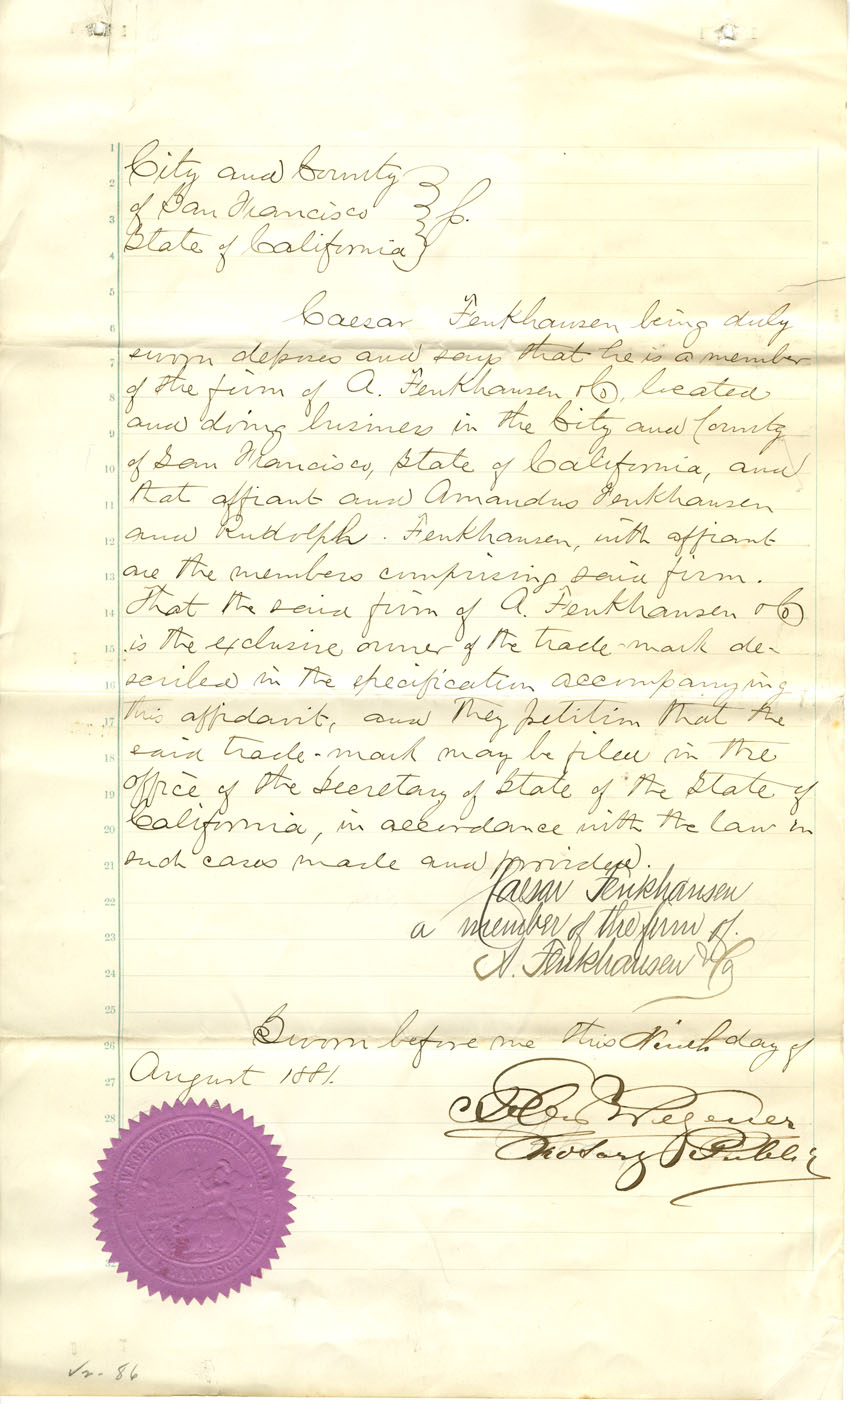 City and County
of San Francisco } ss.
State of California
Caesar Fenkhausen being duly
sworn deposes and says that he is a member
of the firm of A. Fenkhausen & Co, located
and doing business in the City and County
of San Francisco, State of California, and
that affiant and Amandus Fenkhausen
and Rudolph. Fenkhausen, with affiant
are the members comprising said firm.
That the said firm of A. Fenkhausen & Co
is the exclusive owner of the trade-mark de-
scribed in the specification accompanying
this affidavit, and they petition that the
said trade-mark may be filed in the
office of the Secretary of State of the State of
California, in accordance with the law in
such cases made and provided.
Caesar Fenkhausen
a member of the firm of.
A. Fenkhausen & Co
Sworn before me this Ninth day of
August 1881.
Wegener
Notary Public
WEGENER NOTARY PUBLIC
SAN FRANCISCO CAL.
1
2
3
4
5
6
7
8
9
10
11
12
13
14
15
16
17
18
19
20
21
22
23
24
25
26
27
28
86